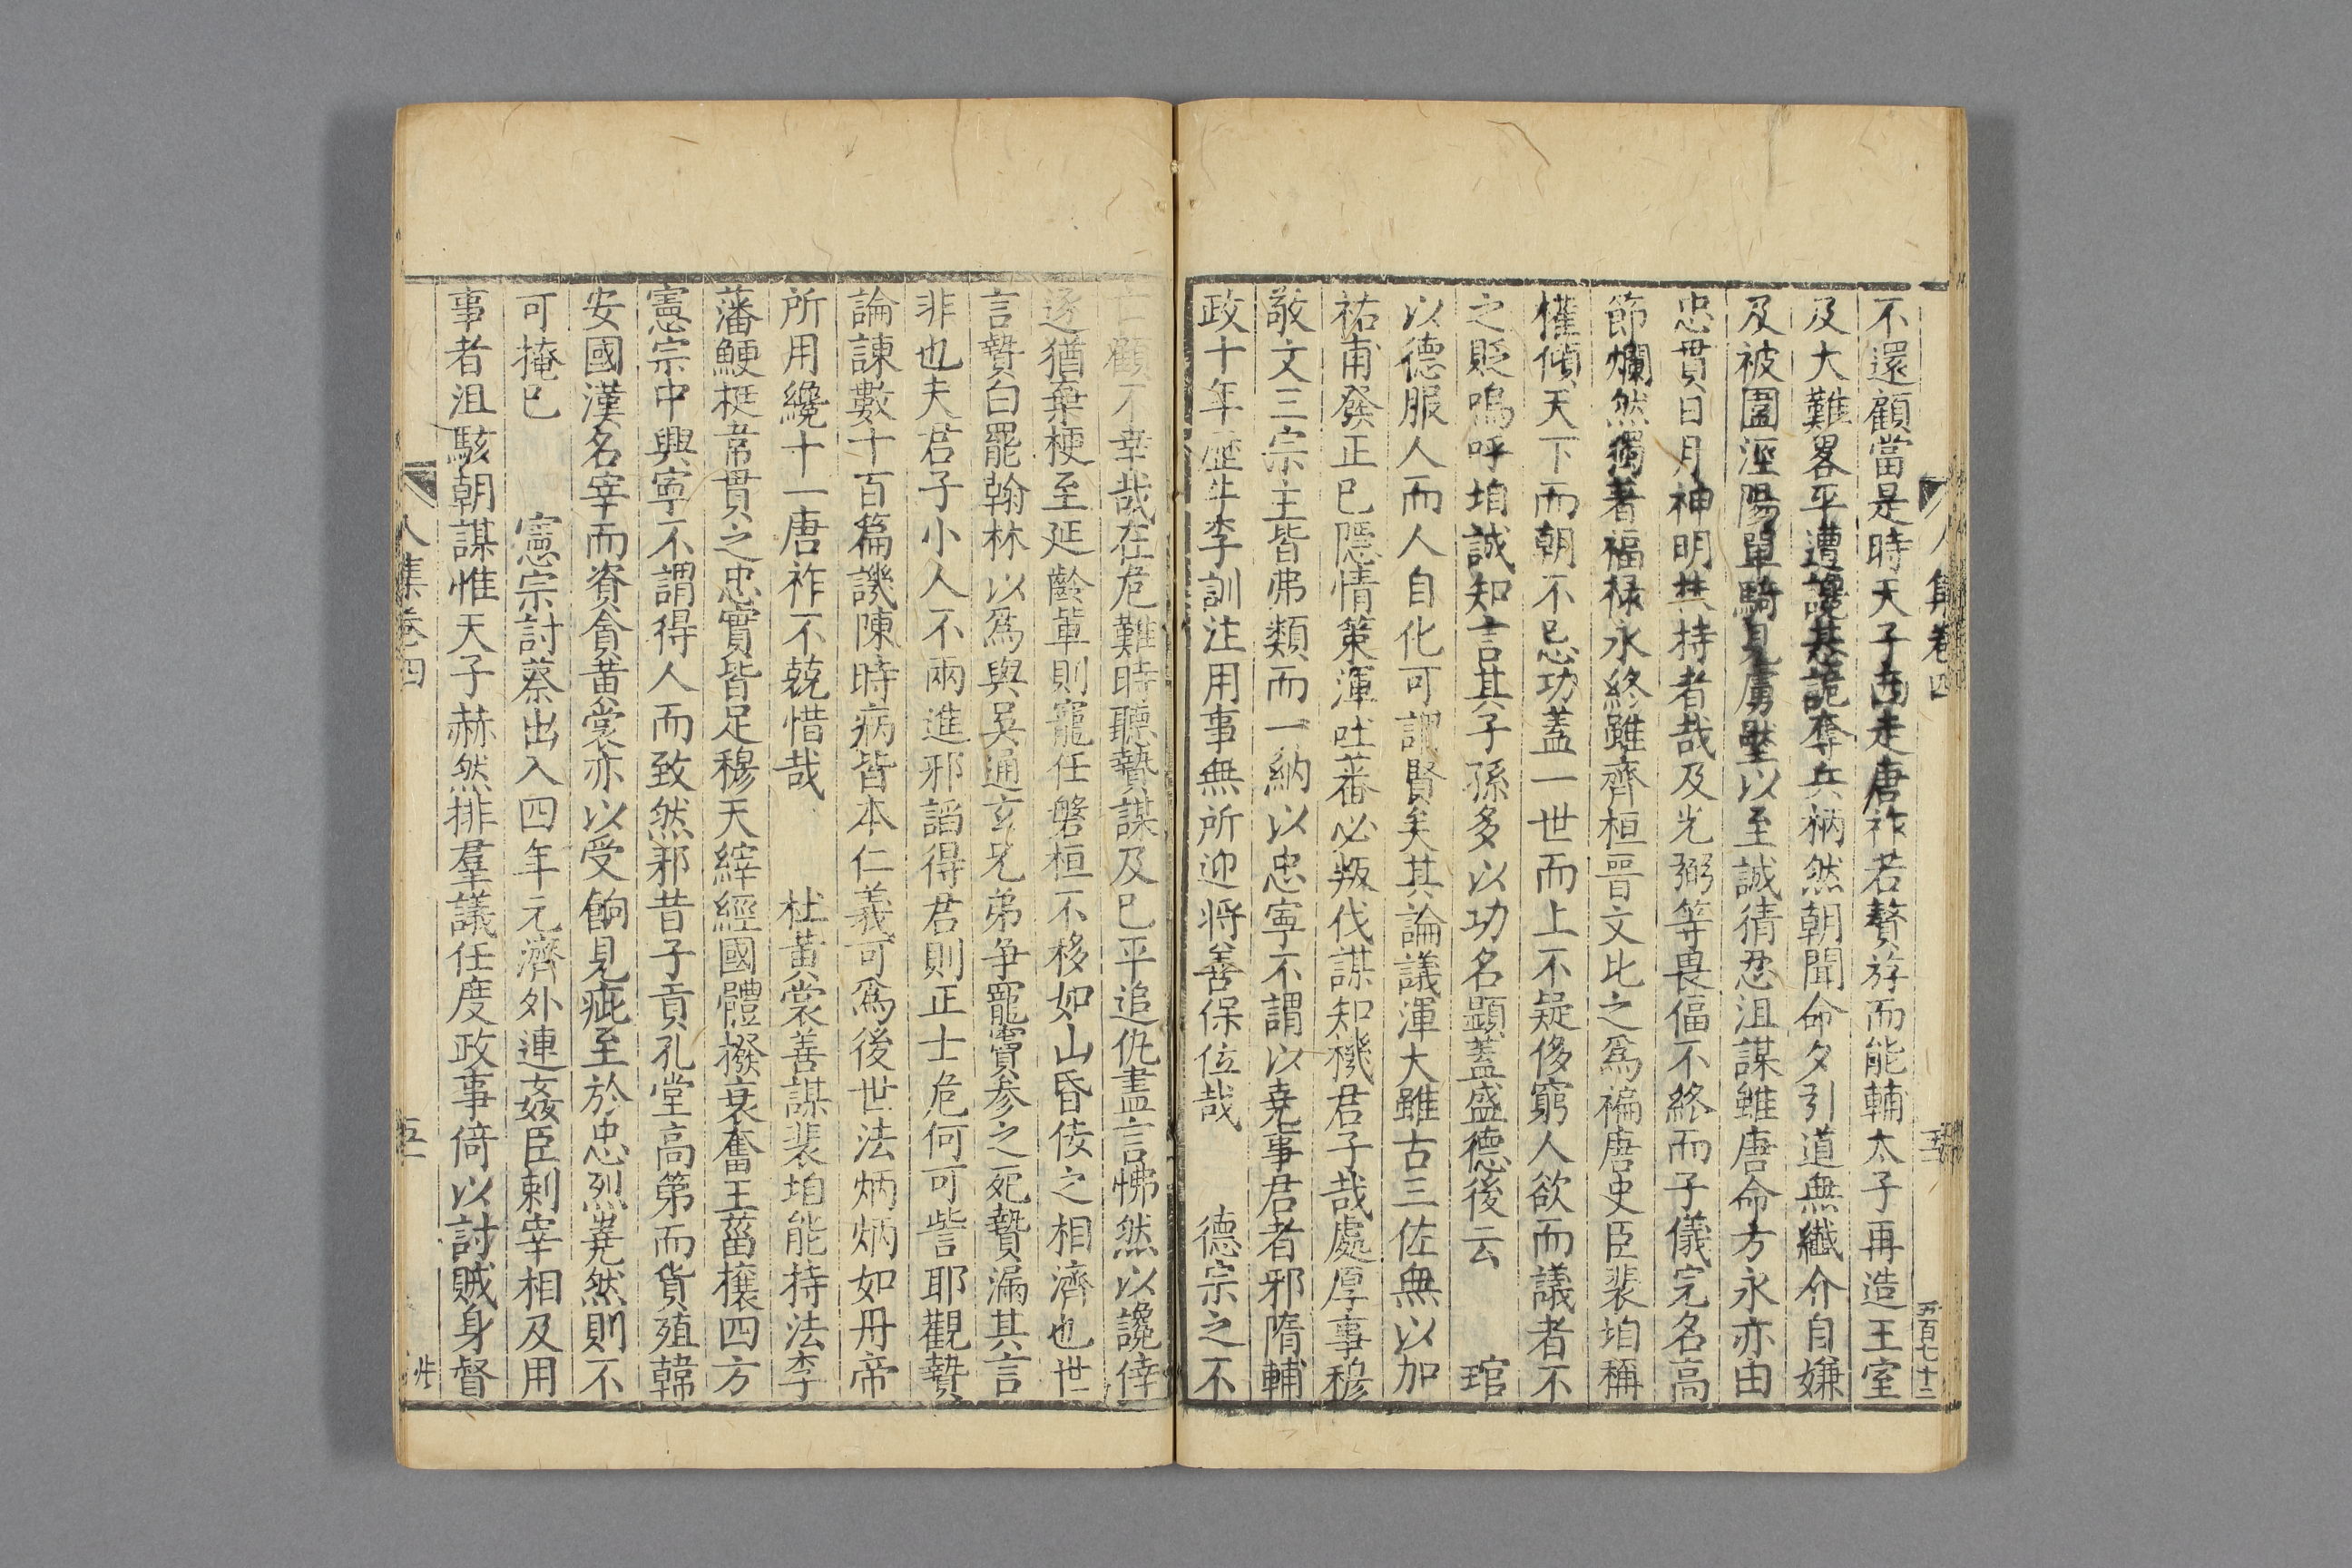 人集卷四 五百七十二
不還顧當是時天子西走唐祚若贅斿而能輔太子再造王室
及大難畧平遭讒惎詭奪兵柄然朝聞命夕引道無纖介自嫌
及被圍涇陽單騎見虜壓以至誠猜忍沮謀雖唐命方永亦由
忠貫日月神明扶持者哉及光弼等畏偪不終而子儀完名高
節爛然獨著福禄永終雖齊桓晉文比之爲褊唐史臣裴垍稱
權傾天下而朝不忌功蓋一世而上不疑侈窮人欲而議者不
之貶嗚呼垍誠知言其子孫多以功名顯蓋盛德後云 琯
以德服人而人自化可謂賢矣其論議渾大雖古三佐無以加
祐甫發正巳隱情策渾吐蕃必叛伐謀知機君子哉處厚事穆
敬文三宗主皆弗類而一納以忠寧不謂以堯事君者邪隋輔
政十年歷牛李訓注用事無所迎將善保位哉 德宗之不
亡顧不幸哉在危難時聽贄謀及巳平追仇盡言怫然以讒倖
逐猶棄梗至延齡輩則寵任磐桓不移如山昏佞之相濟也世
言贄白罷翰林以爲與吳通玄兄弟争寵竇参之死贄漏其言
非也夫君子小人不兩進邪謟得君則正士危何可訾耶觀贄
論諫數十百篇譏陳時病皆本仁義可爲後世法炳炳如丹帝
所用纔十一唐祚不兢惜哉 杜黃裳善謀裴垍能持法李
藩鯁挺韋貫之忠實皆足穆天縡經國體撥衰奮王菑攘四方
憲宗中興寧不謂得人而致然邪昔子貢孔堂高第而貨殖韓
安國漢名宰而資貪黃裳亦以受餉見疵至於忠烈嶤然則不
可掩巳 憲宗討蔡出入四年元濟外連姦臣刺宰相及用
事者沮駭朝謀惟天子赫然排羣議任度政事倚以討賊身督
人集卷四